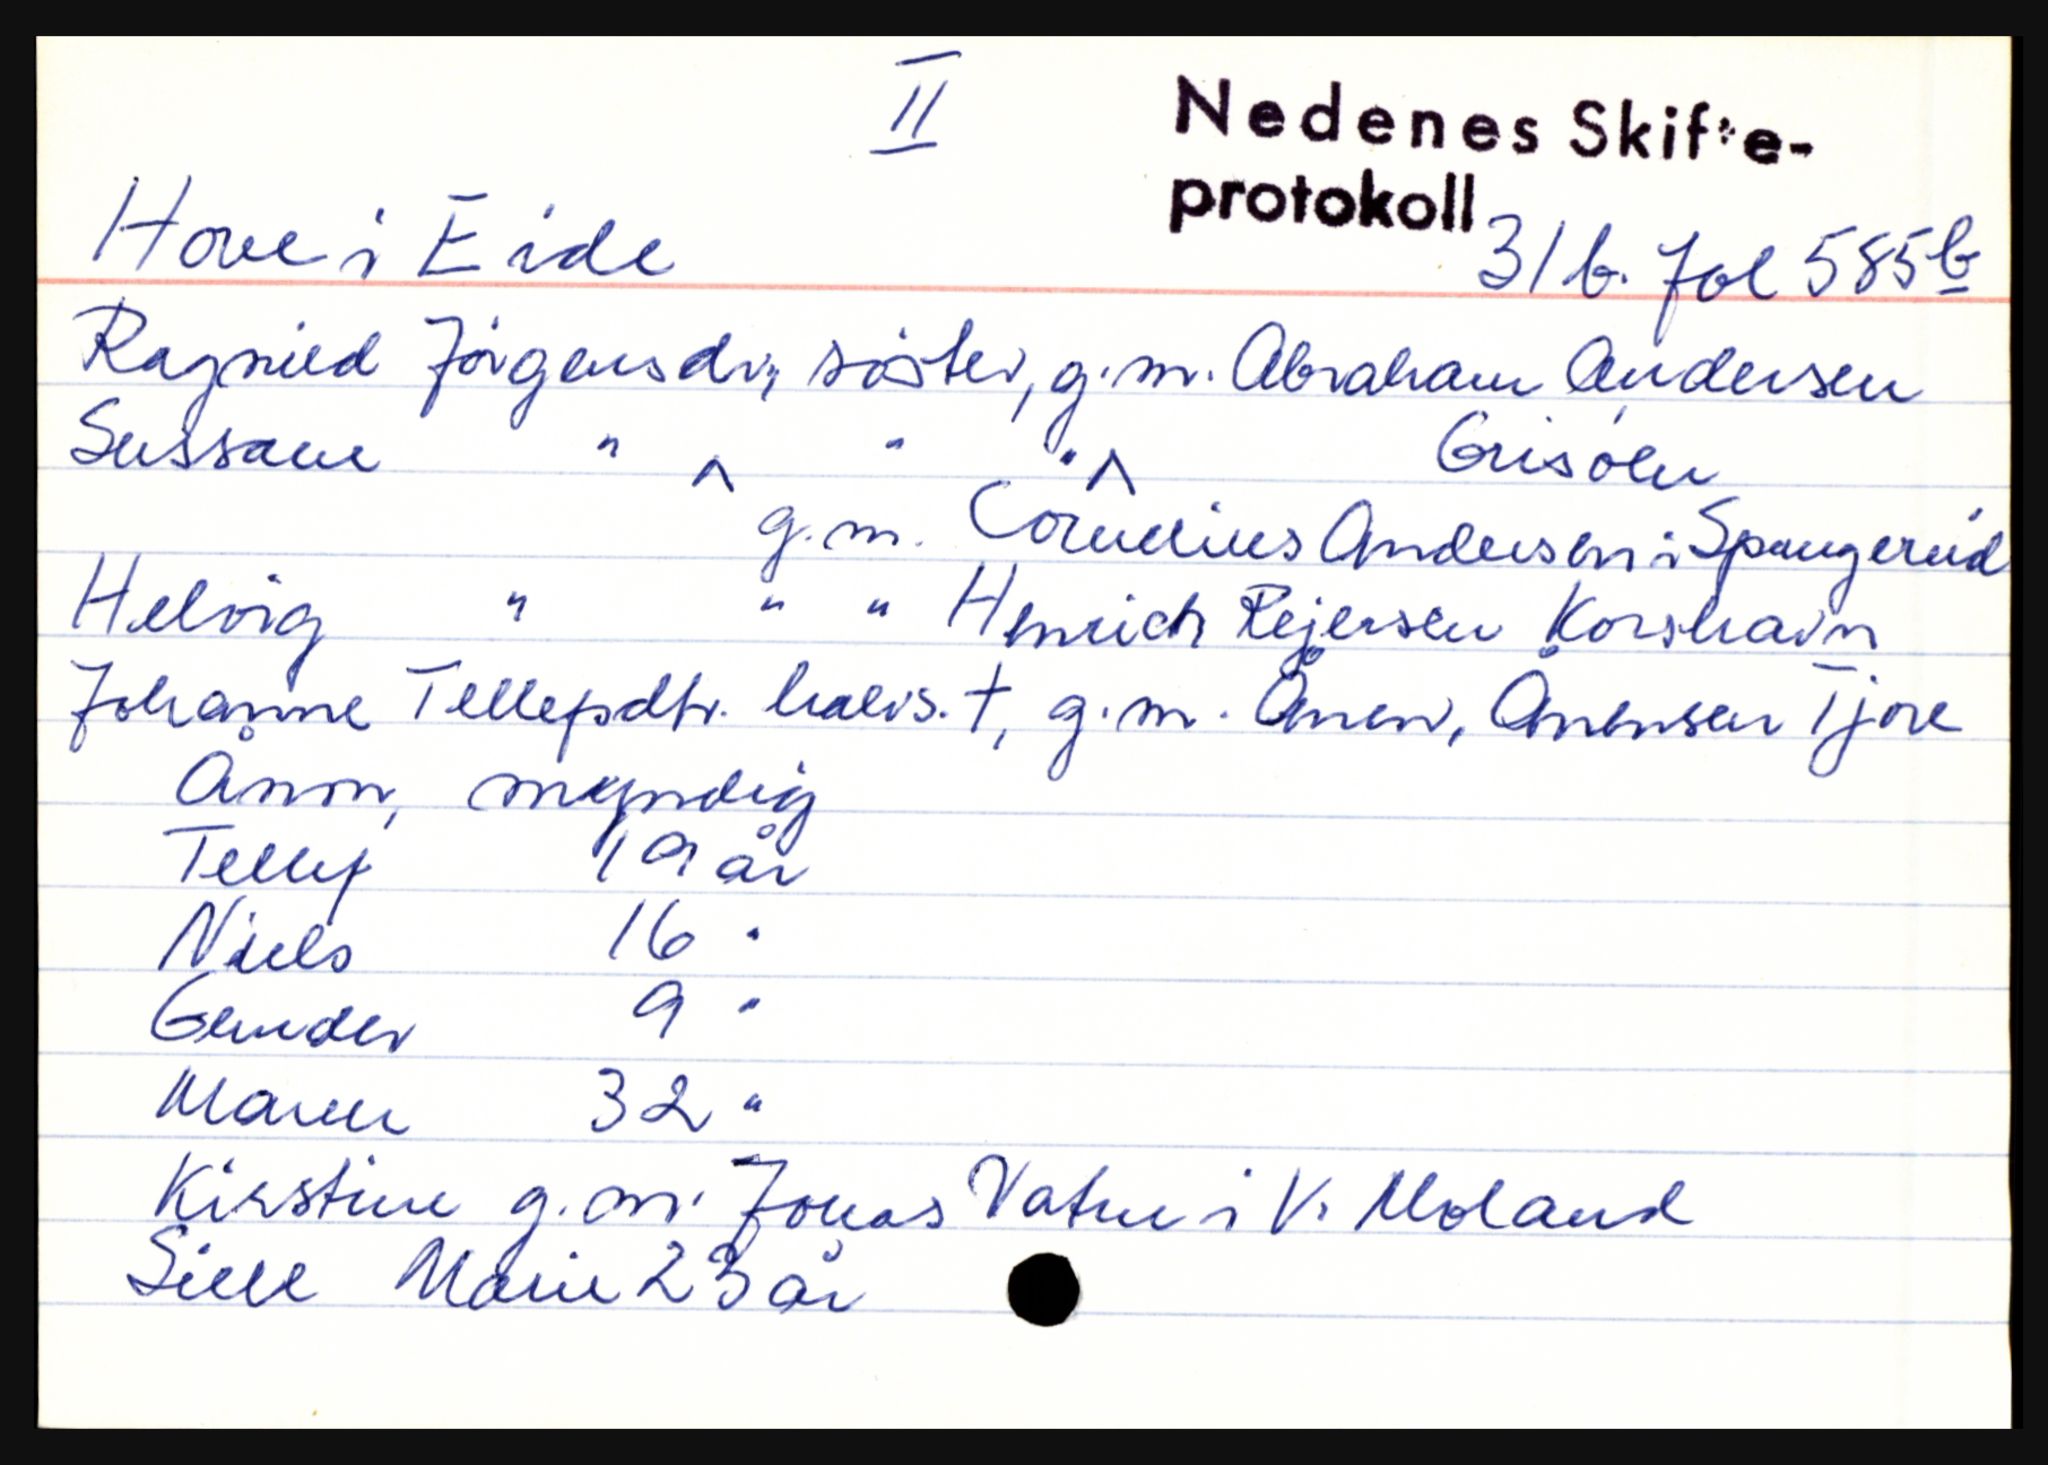 II
Nedenes Skifte-
protokoll
Hove i Eide
31 b. fol 585 b
Ragnild Jörgensdr., söster, g.m. Abraham Andersen
Sussane " ^ " " ^ Grisöen
g.m. Cornelius Andersen i Spangereid
Helvig " " " Henrich Rejersen Korshavn
Johanne Tellefsdtr. halvs. †, g.m. Ånen, Ånensen Tjore
Ånon, myndig
Tellef 19 år
Niels 16 "
Gunder 9 "
Maren 32 "
Kirstine g.m. Jonas Vatne i V. Moland
Sille Marie 23 år